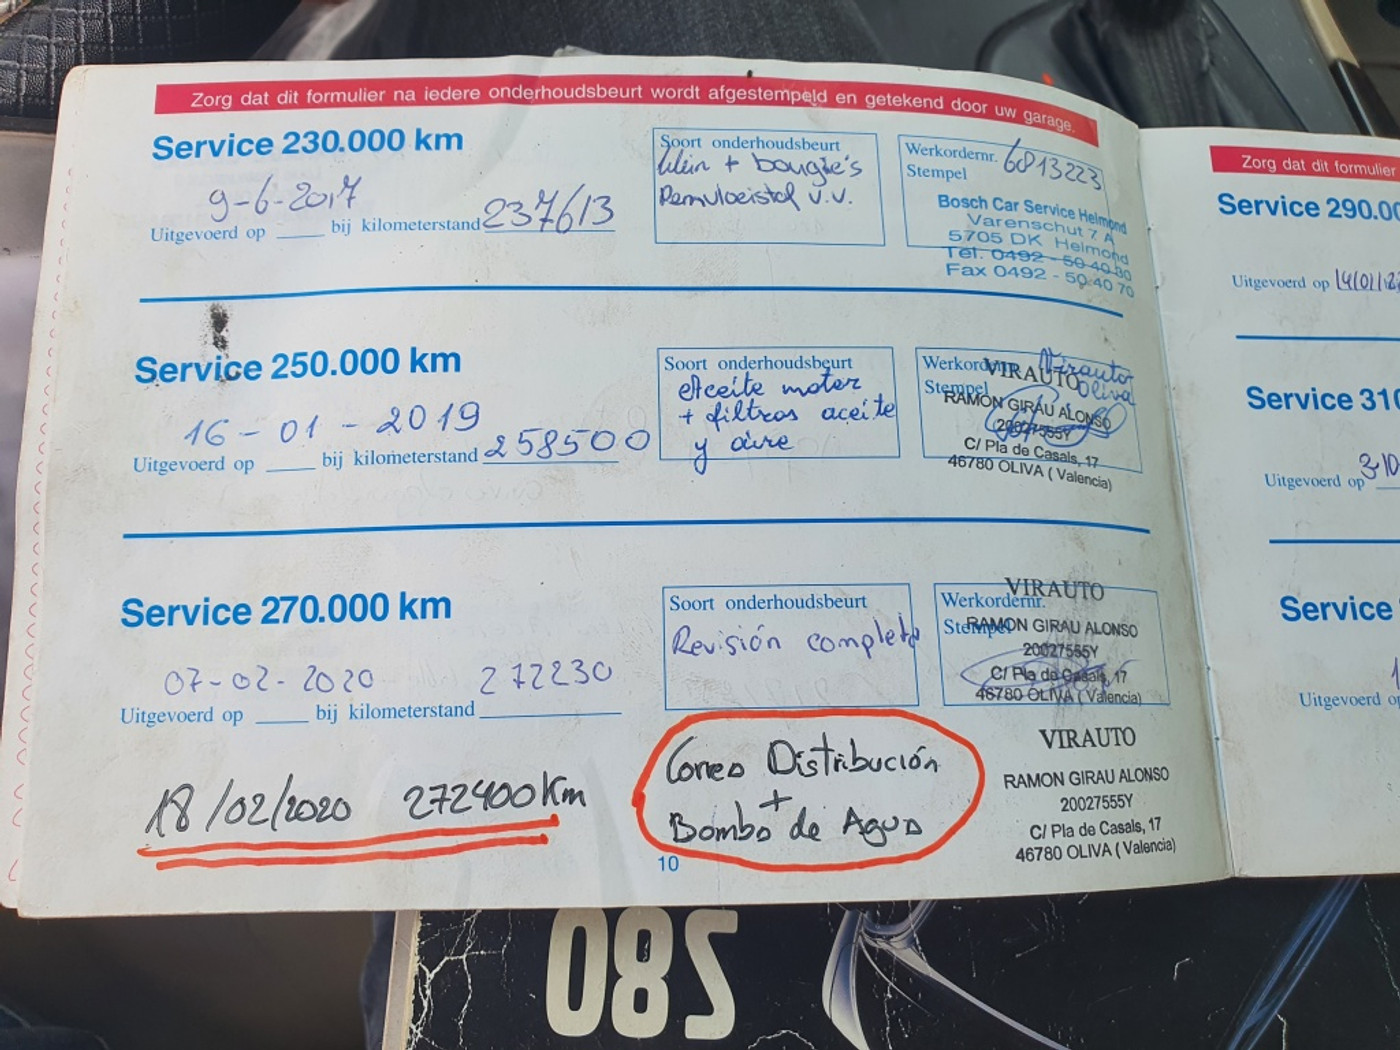 Zorg dat dit formulier na iedere onderhoudsbeurt wordt afgestempeld en getekend door uw garage.
Service 230.000 km
9-6-2017
237613
Uitgevoerd op ____ bij kilometerstand
Soort onderhoudsbeurt
klein + bougie's
Remvloeistof v.v.
Werkordernr. 6813223
Stempel
Bosch Car Service Helmond
Varenschut 7 A
5705 DK Helmond
Tel. 0492 - 50 40 80
Fax 0492 - 50 40 70
Service 250.000 km
16-01-2019
258500
Uitgevoerd op ____ bij kilometerstand
Soort onderhoudsbeurt
Aceite motor
+ filtros aceite
y aire
Werkordernr.
Stempel
Virauto
Oliva
VIRAUTO
RAMON GIRAU ALONSO
20027555Y
C/ Pla de Casals, 17
46780 OLIVA ( Valencia)
Service 270.000 km
07-02-2020
272230
Uitgevoerd op ____ bij kilometerstand
Soort onderhoudsbeurt
Revisión completa
Werkordernr.
Stempel
VIRAUTO
RAMON GIRAU ALONSO
20027555Y
C/ Pla de Casals, 17
46780 OLIVA ( Valencia)
18/02/2020 272400 Km
Correa Distribución
+
Bomba de Agua
VIRAUTO
RAMON GIRAU ALONSO
20027555Y
C/ Pla de Casals, 17
46780 OLIVA ( Valencia)
10
Zorg dat dit formulier
Service 290.00
Uitgevoerd op 14/01/2
Service 310
Uitgevoerd op 3-10
Service
Uitgevoerd op
280